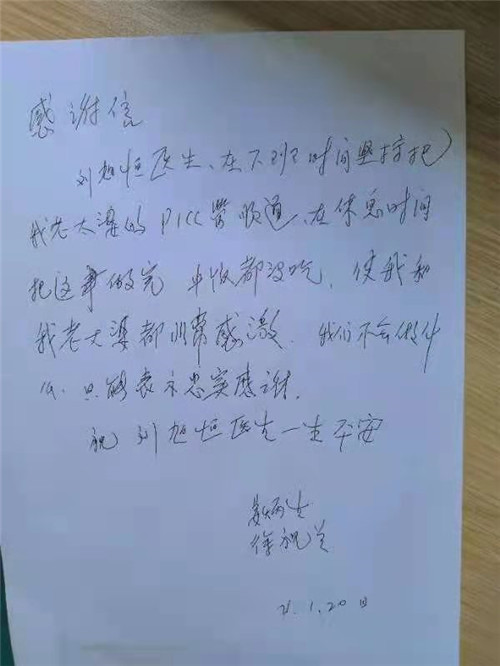 感谢信
刘旭恒医生、在下班时间坚持把
我老太婆的PICC管顺道、在休息时间
把这事做完 中饭都没吃、使我和
我老太婆都非常感激、我们不会做什
么 只能表示忠实感谢.
祝 刘旭恒医生一生平安
炳生
徐祝兰
21.1.20日